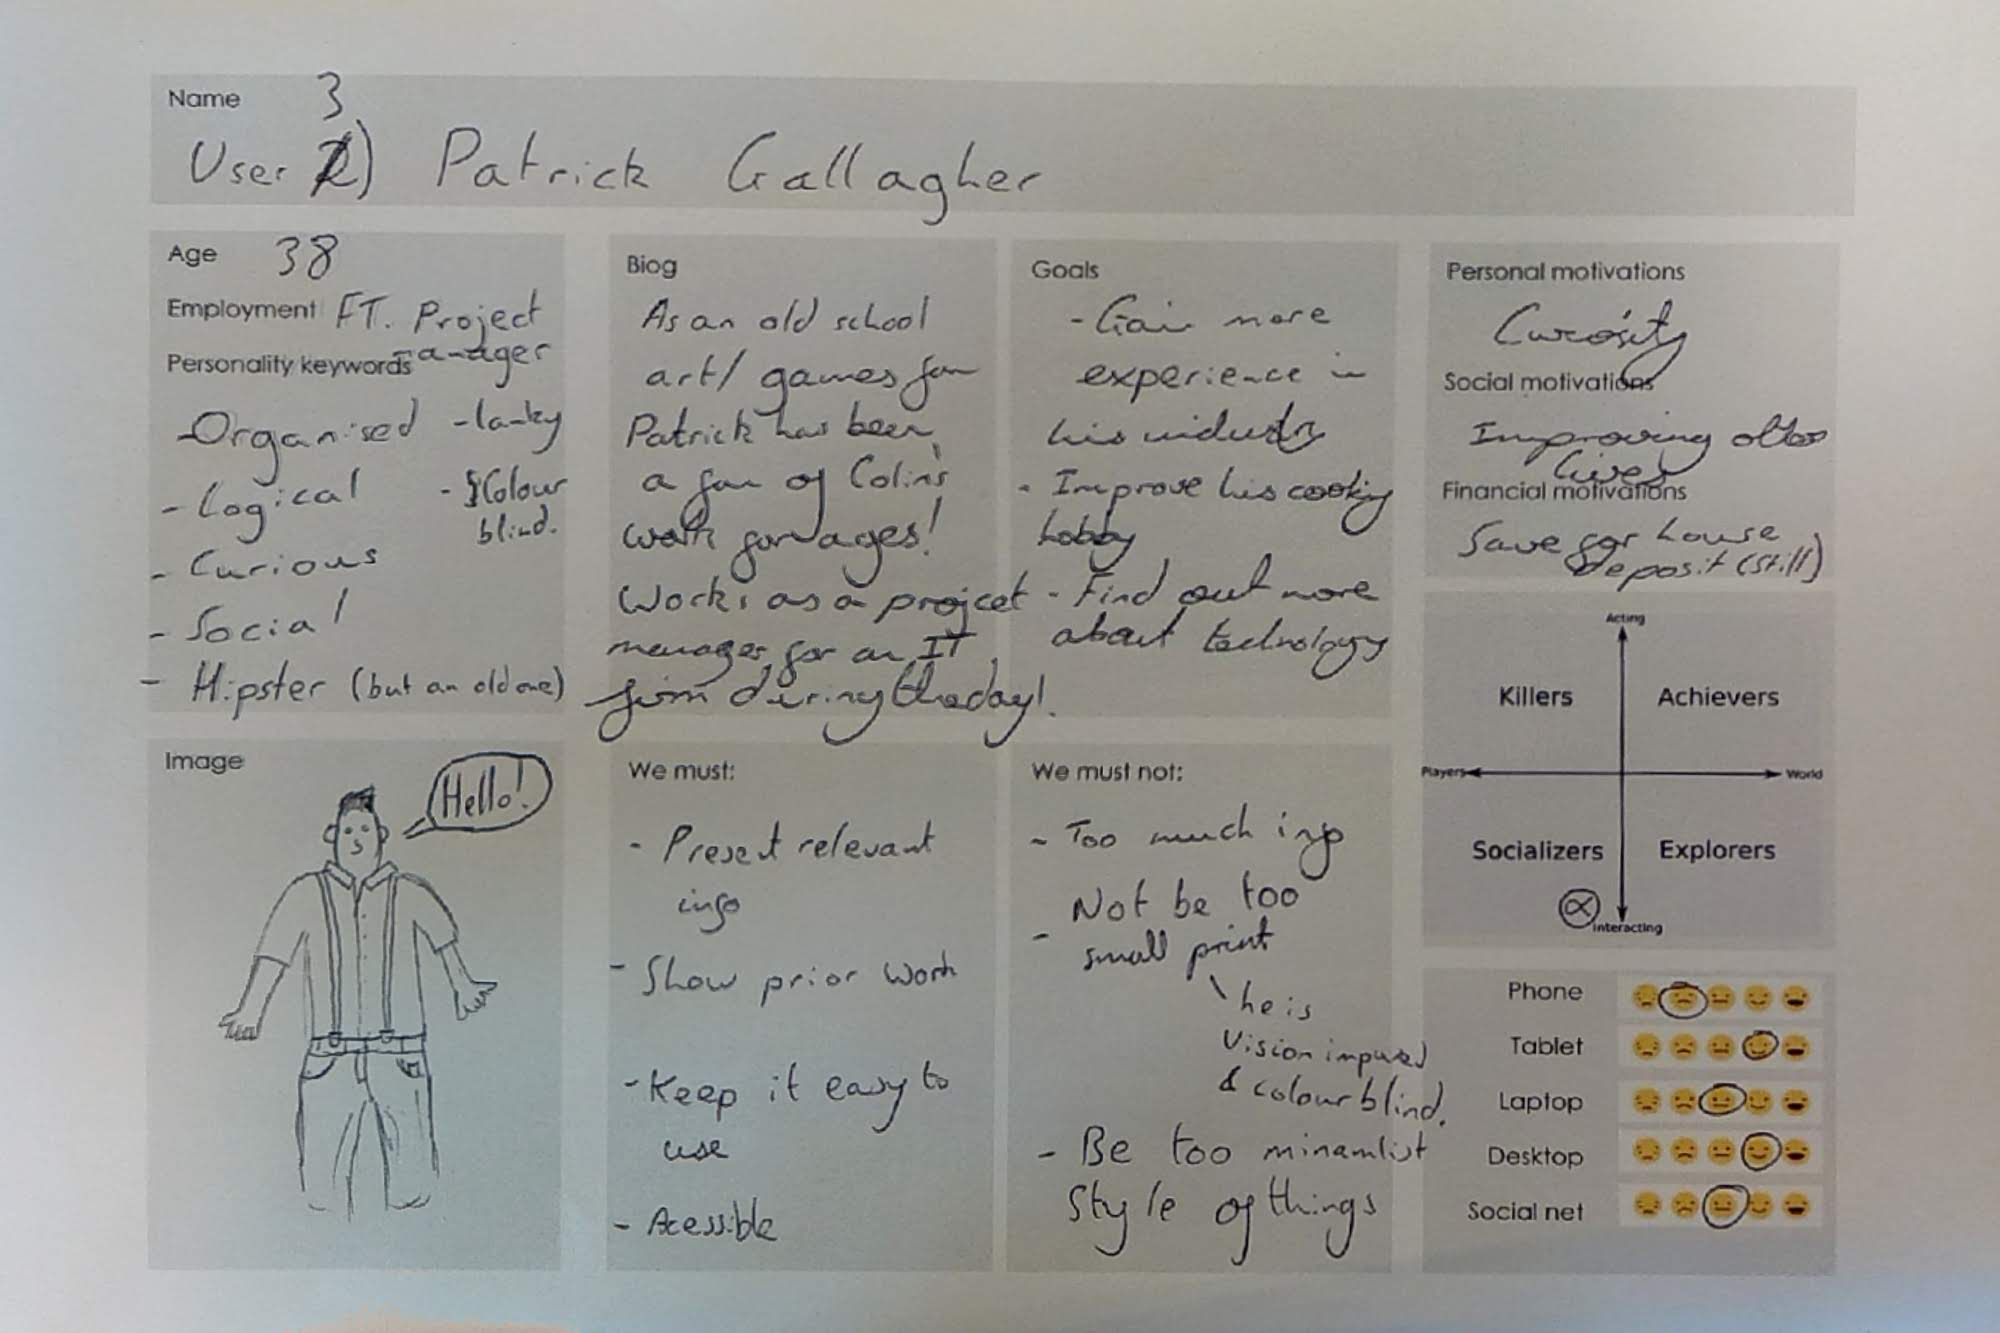 Name 3
User 2) Patrick Gallagher
Age 38
Employment FT. Project
manager
Personality keywords
-Organised -lanky
- Logical - Colour
blind.
- Curious
- Social
- Hipster (but an old one)
Biog
As an old school
art/ games fan
Patrick has been
a fan of Colin's
work for ages!
Works as a project
manager for an IT
firm during the day!.
Goals
- Gain more
experience in
his industry
- Improve his cooking
hobby
- Find out more
about technology
Personal motivations
Curosity
Social motivations
Improving others
lives
Financial motivations
Save for house
deposit (still)
Acting
Killers Achievers
Players World
Socializers Explorers
Interacting
Image
Hello!
We must:
- Present relevant
info
- Show prior work
- Keep it easy to
use
- Acessible
We must not:
- Too much info
- Not be too
small print
he is
Vision impared
& colour blind.
- Be too minamlist
Style of things
Phone
Tablet
Laptop
Desktop
Social net